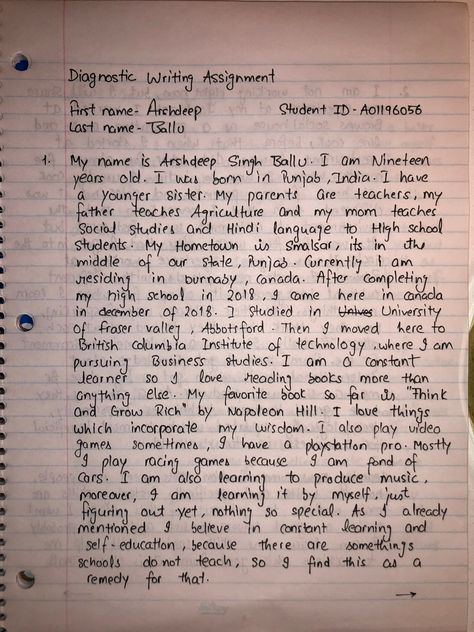 Diagnostic Writing Assignment
First name- Arshdeep Student ID-A01196056
Last name- Ballu
1. My name is Arshdeep Singh Ballu. I am Nineteen
years old. I was born in Punjab, India. I have
a younger sister. My parents are teachers, my
father teaches Agriculture and my mom teaches
Social Studies and Hindi language to High school
students. My Hometown is Smalsar, its in the
middle of our state, Punjab. Currently I am
residing in burnaby, Canada. After completing
my high school in 2018, I came here in canada
in december of 2018. I studied in University
of fraser valley, Abbotsford. Then I moved here to
British columbia Institute of technology, where I am
pursuing Business studies. I am a constant
learner so I love reading books more than
anything else. My favorite book so far is "Think
and Grow Rich" by Napoleon Hill. I love things
which incorporate my wisdom. I also play video
games sometimes, I have a playstation pro. Mostly
I play racing games because I am fond of
cars. I am also learning to produce music,
moreover, I am learning it by myself, just
figuring out yet, nothing so special. As I already
mentioned I believe in constant learning and
self-education, because there are somethings
schools do not teach, so I find this as a
remedy for that.